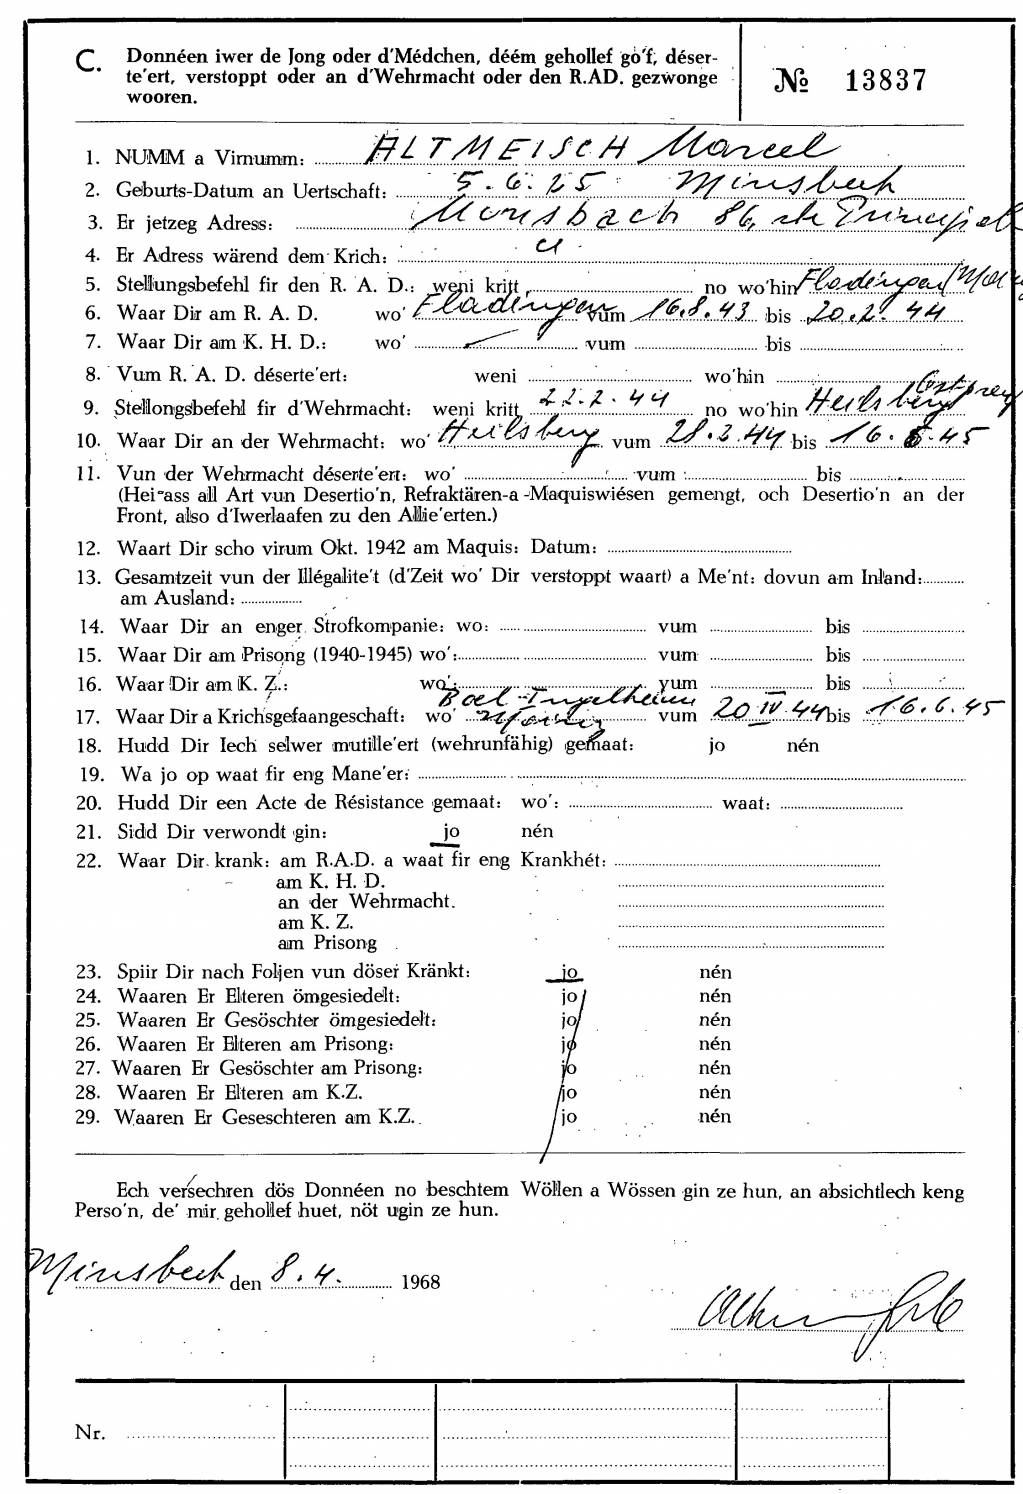 C. Donnéen iwer de Jong oder d'Médchen, déém gehollef gö'f, déser-
te'ert, verstoppt oder an d'Wehrmacht oder den R.AD. gezwonge
wooren.
№ 13837
1. NUMM a Virnumm: ALTMEISCH Marcel
2. Geburts-Datum an Uertschaft: 5.6.25 Minsbech
3. Er jetzeg Adress: Munsbach 86, rte Principale
4. Er Adress wärend dem Krich:
5. Stellungsbefehl fir den R. A. D.: weni kritt no wo'hin Fladingen
6. Waar Dir am R. A. D. wo' Fladingen vum 16.8.43 bis 20.2.44
7. Waar Dir am K. H. D.: wo' vum bis
8. Vum R. A. D. déserte'ert: weni wo'hin
9. Stellongsbefehl fir d'Wehrmacht: weni kritt 22.2.44 no wo'hin Heilsberg Ostpreus
10. Waar Dir an der Wehrmacht: wo' Heilsberg vum 28.2.44 bis 16.6.45
11. Vun der Wehrmacht déserte'ert: wo' vum bis
(Hei-ass all Art vun Desertio'n, Refraktären-a-Maquiswiésen gemengt, och Desertio'n an der
Front, also d'Iwerlaafen zu den Allie'erten.)
12. Waart Dir scho virum Okt. 1942 am Maquis: Datum:
13. Gesamtzeit vun der Illégalite't (d'Zeit wo' Dir verstoppt waart) a Me'nt: dovun am Inland:
am Ausland:
14. Waar Dir an enger Strofkompanie: wo: vum bis
15. Waar Dir am Prisong (1940-1945) wo': vum bis
16. Waar Dir am K. Z.: wo': vum bis
17. Waar Dir a Krichsgefaangeschaft: wo' Bad-Ingelheim Mainz vum 20 IV 44 bis 16.6.45
18. Hudd Dir Iech selwer mutille'ert (wehrunfähig) gemaat: jo nén
19. Wa jo op waat fir eng Mane'er:
20. Hudd Dir een Acte de Résistance gemaat: wo': waat:
21. Sidd Dir verwondt gin: jo nén
22. Waar Dir krank: am R.A.D. a waat fir eng Krankhét:
am K. H. D.
an der Wehrmacht.
am K. Z.
am Prisong
23. Spiir Dir nach Foljen vun döser Kränkt: jo nén
24. Waaren Er Elteren ömgesiedelt: jo nén
25. Waaren Er Gesöschter ömgesiedelt: jo nén
26. Waaren Er Elteren am Prisong: jo nén
27. Waaren Er Gesöschter am Prisong: jo nén
28. Waaren Er Elteren am K.Z. jo nén
29. Waaren Er Geseschteren am K.Z. jo nén
Ech versechren dös Donnéen no beschtem Wöllen a Wössen gin ze hun, an absichtlech keng
Perso'n, de' mir gehollef huet, nöt ugin ze hun.
Minsbech den 8.4. 1968
Nr.